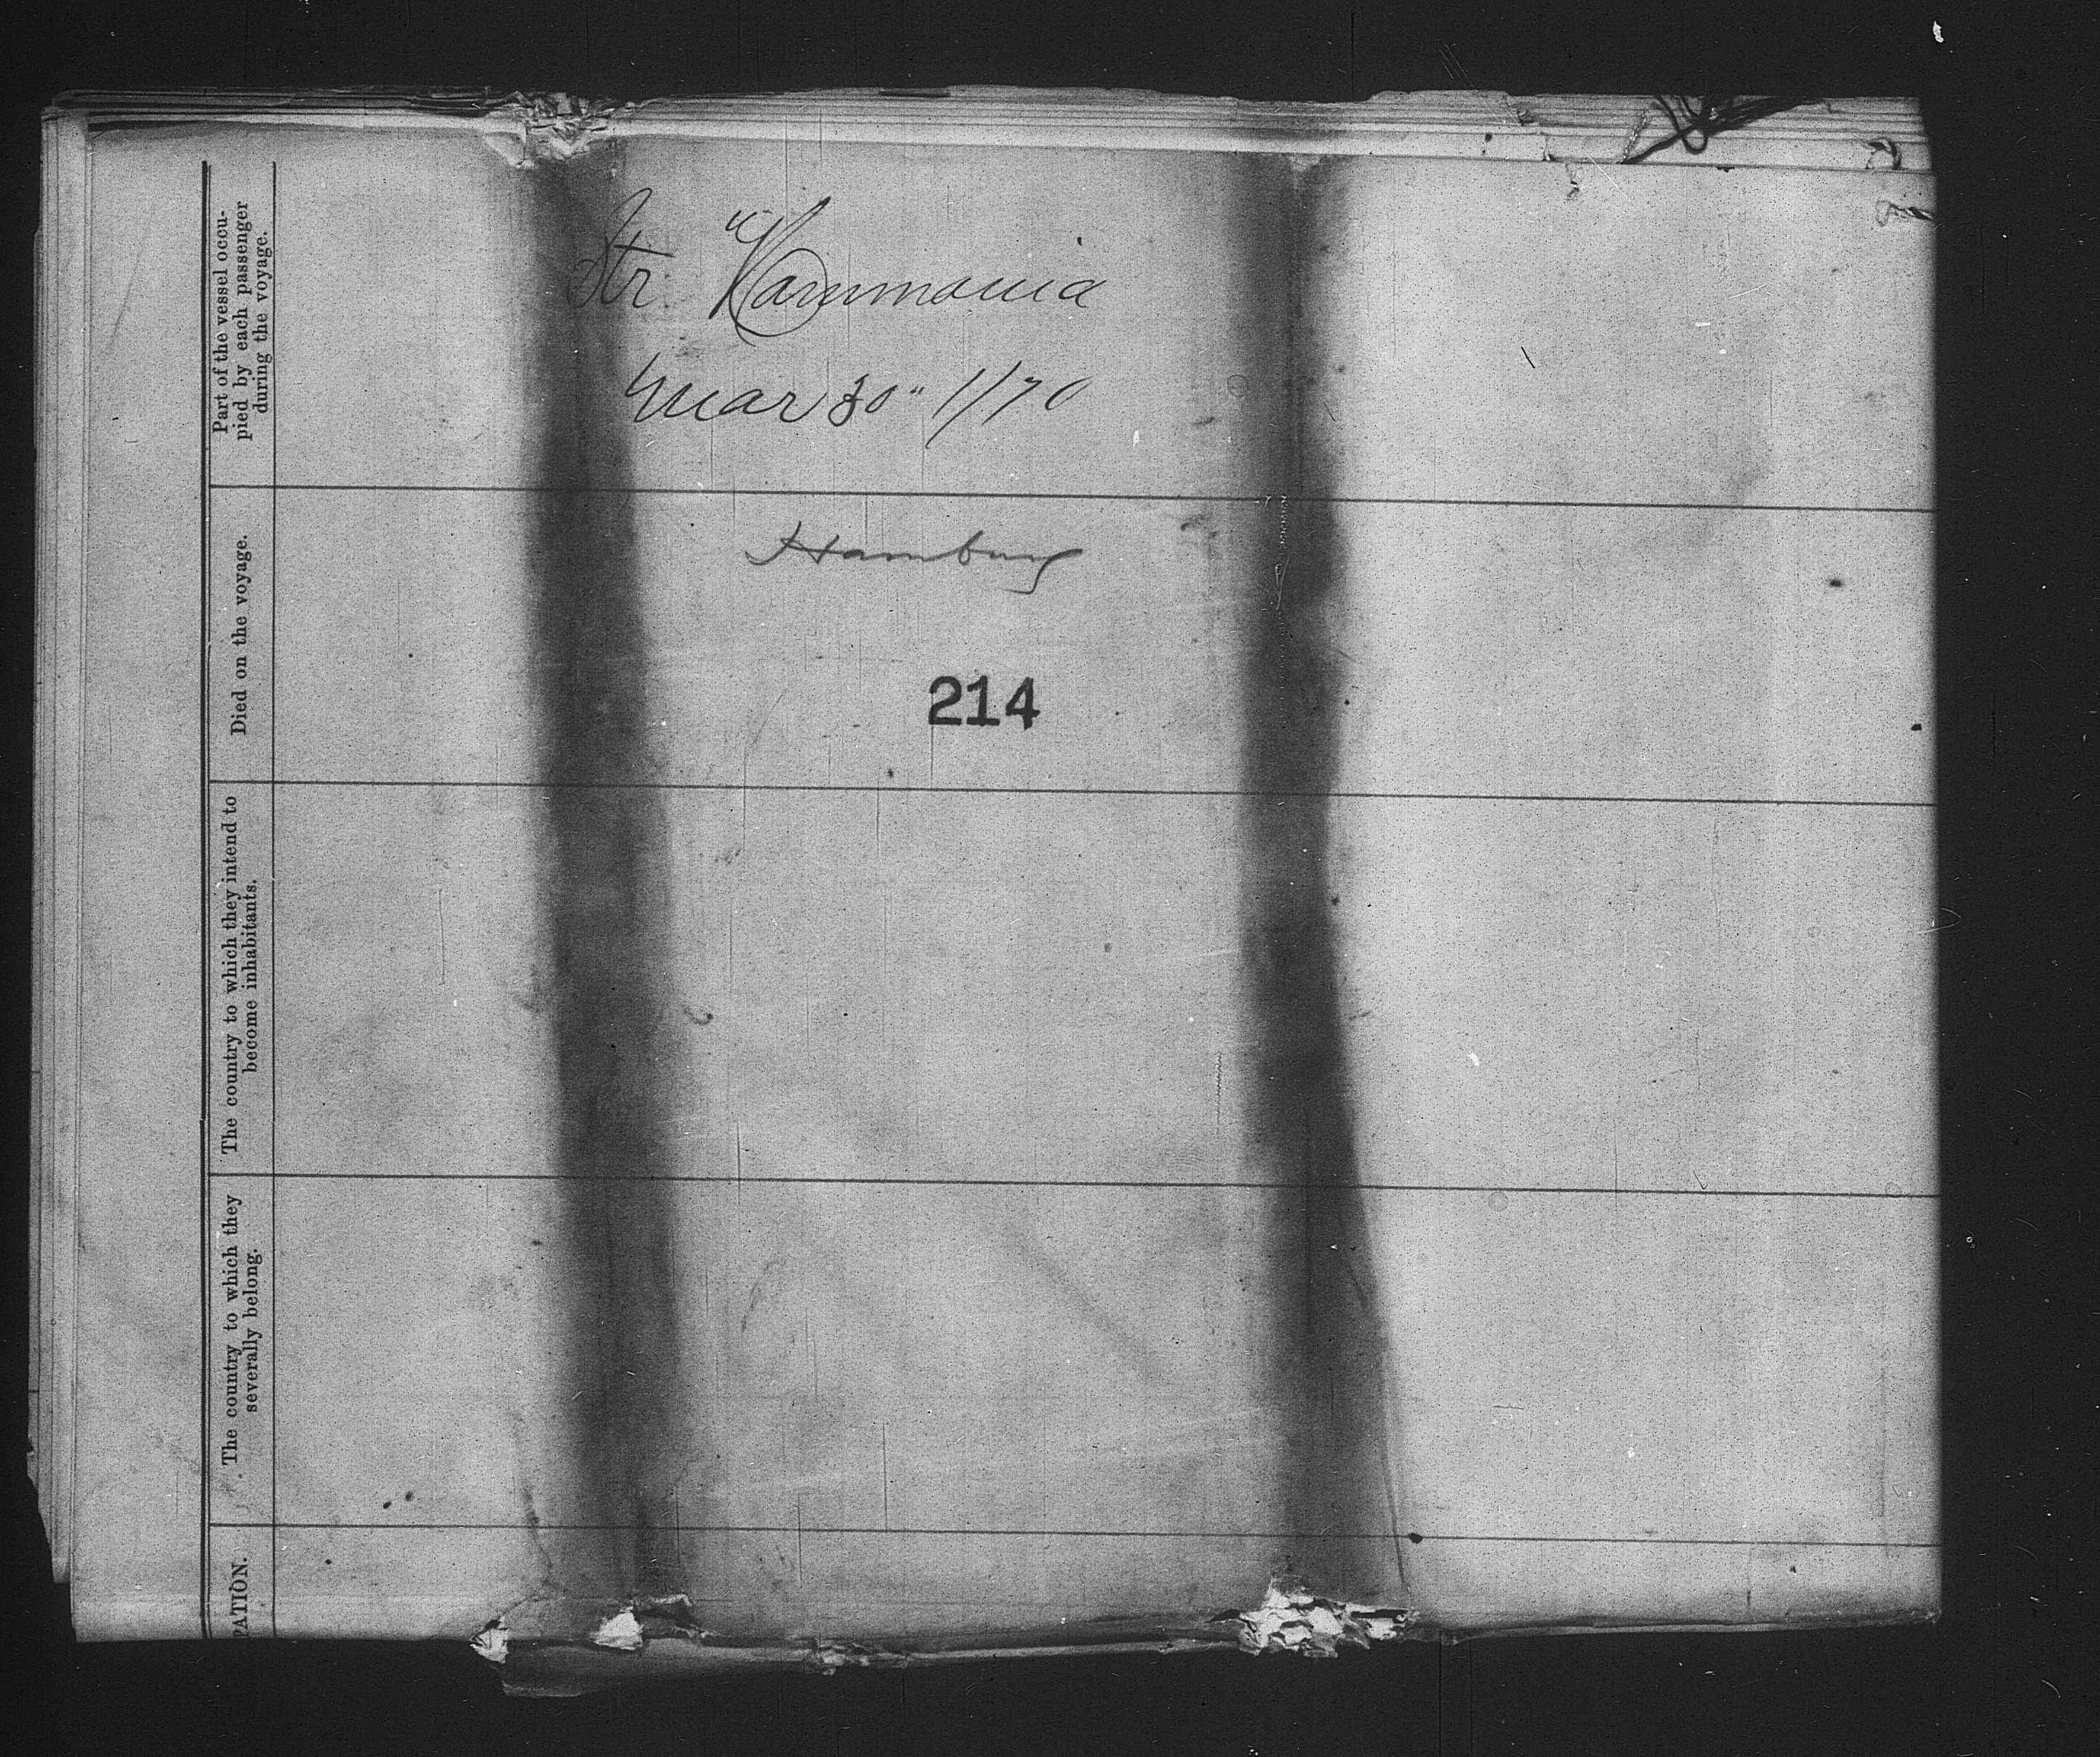 Str. Hammonia
Mar 30" 1/70
Hamburg
214
Part of the vessel occu-
pied by each passenger
during the voyage.
Died on the voyage.
The country to which they intend to
become inhabitants.
The country to which they
severally belong.
PATION.